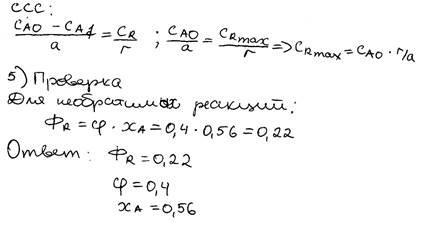 ССС:
(C_A0 - C_A1)/a = C_R/r ; C_A0/a = C_Rmax/r => C_Rmax = C_A0 · r/a
5) Проверка
Для необратимых реакций:
Ф_R = φ · x_A = 0,4 · 0,56 = 0,22
Ответ: Ф_R = 0,22
φ = 0,4
x_A = 0,56